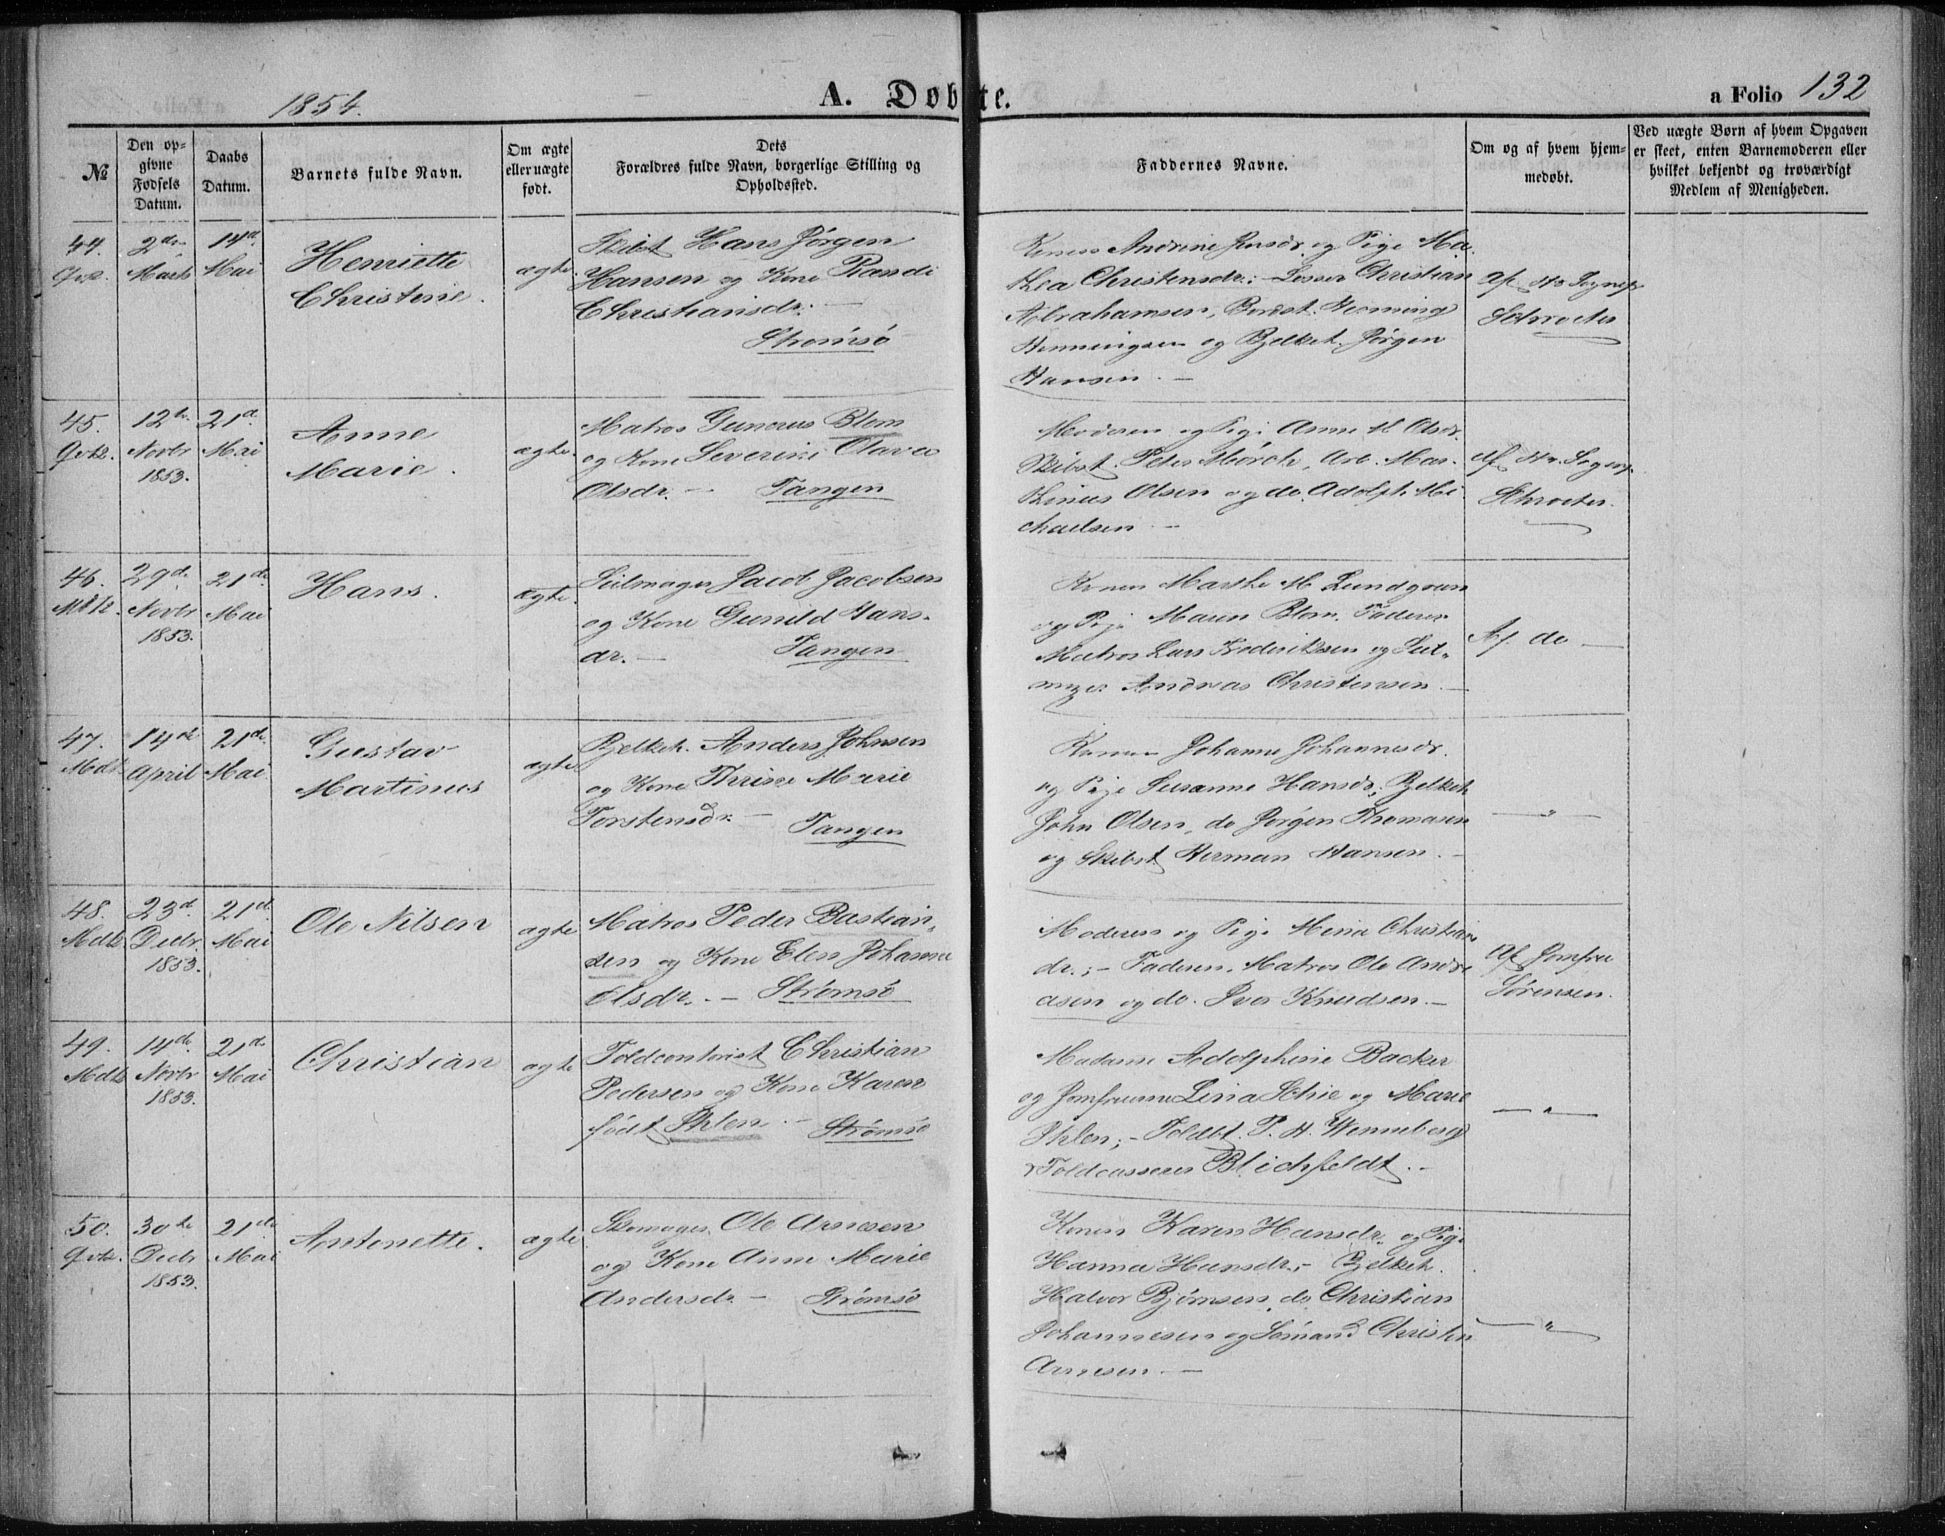 1854.
A. Døbte.
a Folio 132
№
Den opgivne Fødsels Datum.
Daabs Datum.
Barnets fulde Navn.
Om ægte eller uægte født.
Dets Forældres fulde Navn, borgerlige Stilling og Opholdssted.
Faddernes Navne.
Om og af hvem hjemmedøbt.
Ved uægte Børn af hvem Opgaven er skeet, enten Barnemoderen eller hvilket bekjendt og troværdigt Medlem af Menigheden.
44.
2den Marts
14d Mai
Henriette
Christine.
ægte
Skibst Hans Jørgen
Hansen og Kone Randi
Christiansdr. —
Strømsø
Konen Andrine Jensdr. og Pige Ma-
thea Christensdr.; — Losser Christian
Abrahamsen, Henning
Henningsen og Bjelkeh. Jørgen
Hansen. —
Af Hr Sognepr
Schroeter
45.
12te Novbr 1853.
21d Mai
Anne
Marie.
ægte.
Matros Gunerus Blom
og Kone Severine Olava
Olsdr. — Tangen
Moderen og Pige Anne M Olsdr.
Skibst. Peder Mørch, Arb. Mar-
thinius Olsen og do. Adolph Mi-
chaelsen —
Af Hr. Sognepr
Schroeter.
46.
29d. Novbr 1853.
21de Mai
Hans.
ægte.
Seilmager Jacob Jacobsen
og Kone Gunild Hans-
dr. — Tangen
Konen Marthe M. Lundgreen
og Pige Maren Blom. Faderen
Matros Lars Frederiksen og Seil-
mager Andreas Christensen —
Af do —
47.
14de April
21de Mai
Gustav
Martinus
ægte
Bjelkeh. Anders Johnsen
og Kone Thrine Marie
Torstensdr. —
Tangen
Konen Johanne Johannesdr.
og Pige Susanne Hansdr; Bjelkeh
John Olsen, do Jørgen Thomasen
og Skibst Herman Hansen. —
— " —
48.
23d. Decbr. 1853.
21d. Mai
Ole Nilsen
ægte
Matros Peder Bastian-
sen og Kone Elen Johanne
Olsdr. — Strømsø
Moderen og Pige Mina Christian
dr.; — Faderen, Matros Ole Andre
asen og do. Iver Knudsen. —
Af Jomfru
Sørensen.
49.
14de. Novbr 1853.
21de Mai
Christian
ægte
Toldcontorist Christian
Pedersen og Kone Karen
født Ihlen. — Strømsø
Madame Adolphine Backer
og Jomfruerne Lina Schie og Marie
Ihlen; — Toldbt. P. H. Wenneberg
& Toldcasserer Blichfeldt. —
— " —
50.
30te Decbr 1853.
21de Mai
Antonette.
ægte
Skomager Ole Arnesen
og Kone Anne Marie
Andersdr. — Strømsø
Konen Karen Hansdr. og Pige
Hanna Hansdr; — Bjelkeh.
Halvor Bjørnsen, do Christian
Johannesen og Sømand Christen
Arnesen. —
— " —